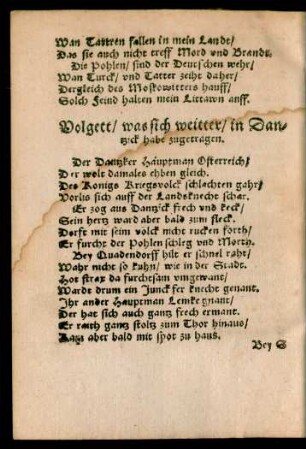 Wan Tattren fallen in mein Landt/
Das sie auch nicht treff Mord vnd Brandt.
Die Pohlen/ sind der Deutschen wehr/
Wan Turck/ vnd Tatter zeiht daher/
Dergleich des Moskowitters hauff/
Solch Feind halten mein Littawn auff.
Volgett/ was sich weitter/ in Dan-
tzck habe zugetragen.
Der Dantzker Häuptman Osterreich/
Der wolt damales ehben gleich.
Des Konigs Kriegsvolck schlachten gahr/
Vorlis sich auff der Landsknecht schar.
Er zog aus Dantzck frech vnd keck/
Sein hertz ward aber bald zum fleck.
Dorft mit seim volck nicht rucken forth/
Er furcht der Pohlen schleg vnd Morth.
Bey Quadendorff hilt er schnel raht/
Wahr nicht so kuhn/ wie in der Stadt.
Hot strax da furchtsam vmgewant/
Wardt drum ein Junck fer knecht genant.
Ihr ander Hauptman Lemke gnant/
Der hat sich auch gantz frech ermant.
Er gantz stoltz zum Thor hinaus/
Kam aber bald mit spot zu haus.
Bey